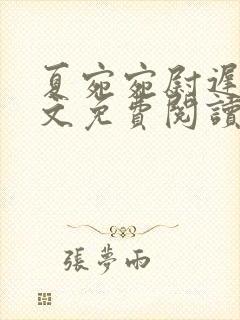 夏宛宛尉遲
文免費閱讀
張夢雨